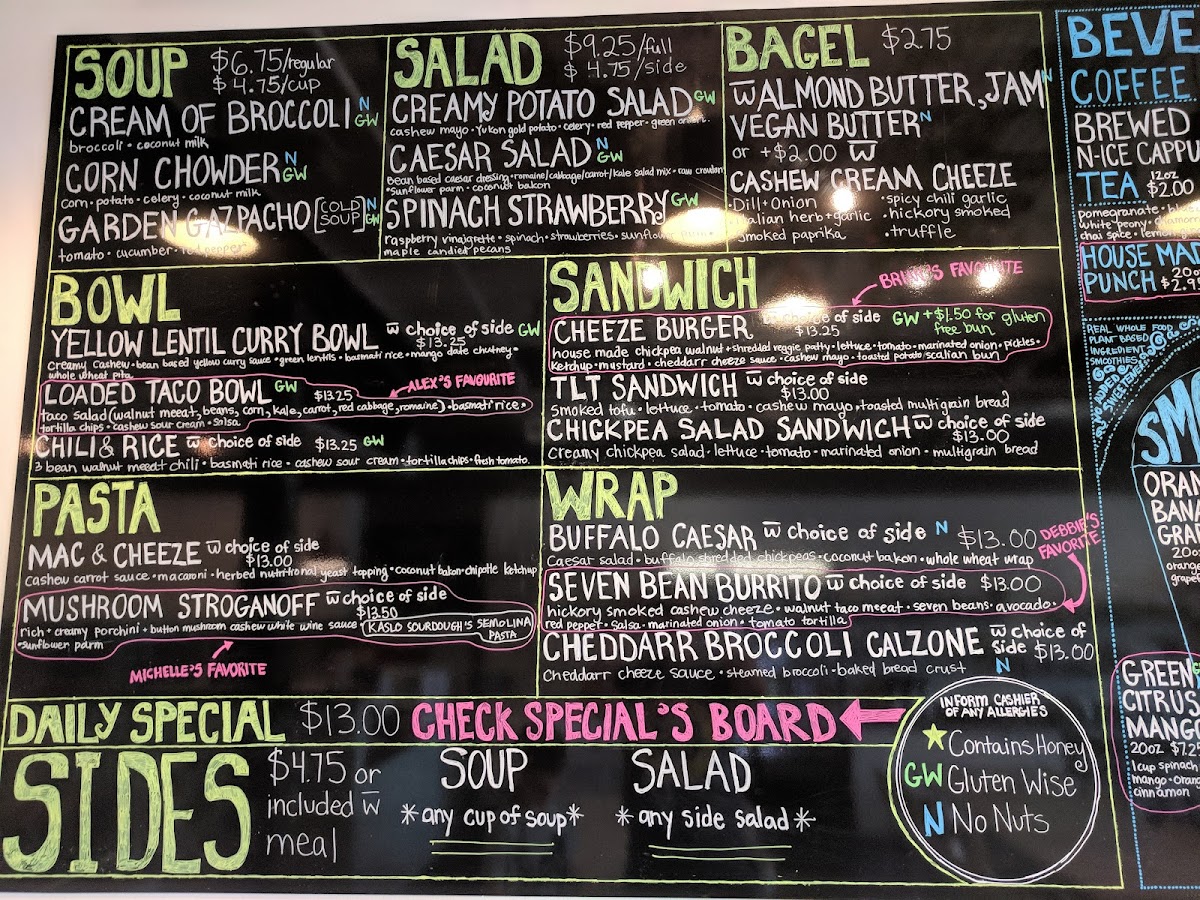 SOUP $6.75/regular
$4.75/cup
CREAM OF BROCCOLI N GW
broccoli • coconut milk
CORN CHOWDER N GW
corn • potato • celery • coconut milk
GARDEN GAZPACHO [COLD SOUP] N GW
tomato • cucumber • red pepper
SALAD $9.25/full
$4.75/side
CREAMY POTATO SALAD GW
cashew mayo • yukon gold potato • celery • red pepper • green onion
CAESAR SALAD N GW
Bean based caesar dressing • romaine/cabbage/carrot/kale salad mix • raw crouton
*sunflower parm • coconut bakon
SPINACH STRAWBERRY GW
raspberry vinaigrette • spinach • strawberries • sunflower
maple candied pecans
BAGEL $2.75
w ALMOND BUTTER, JAM N
VEGAN BUTTER N
or +$2.00 w
CASHEW CREAM CHEEZE
• Dill + Onion • spicy chili garlic
italian herb + garlic • hickory smoked
smoked paprika • truffle
BOWL
YELLOW LENTIL CURRY BOWL w choice of side GW
$13.25
creamy cashew • bean based yellow curry sauce • green lentils • basmati rice • mango date chutney •
whole wheat pita
LOADED TACO BOWL GW $13.25
ALEX'S FAVOURITE
taco salad (walnut meeat, beans, corn, kale, carrot, red cabbage, romaine) • basmati rice •
tortilla chips • cashew sour cream • salsa
CHILI & RICE w choice of side $13.25 GW
3 bean walnut meeat chili • basmati rice • cashew sour cream • tortilla chips • fresh tomato.
SANDWICH
FAVOURITE
CHEEZE BURGER w choice of side GW +$1.50 for gluten free bun
$13.25
house made chickpea walnut + shredded veggie patty • lettuce • tomato • marinated onion • pickles •
ketchup • mustard • cheddarr cheeze sauce • cashew mayo • toasted potato scalian bun
TLT SANDWICH w choice of side
$13.00
Smoked tofu • lettuce • tomato • cashew mayo • toasted multigrain bread
CHICKPEA SALAD SANDWICH w choice of side
$13.00
Creamy chickpea salad • lettuce • tomato • marinated onion • multigrain bread
PASTA
MAC & CHEEZE w choice of side
$13.00
cashew carrot sauce • macaroni • herbed nutritional yeast topping • coconut bakon • chipotle ketchup
MUSHROOM STROGANOFF w choice of side
$13.50
rich + creamy porchini + button mushroom cashew white wine sauce • KASLO SOURDOUGH'S SEMOLINA PASTA
*sunflower parm
MICHELLE'S FAVORITE
WRAP
BUFFALO CAESAR w choice of side N $13.00
Caesar salad • buffalo shredded chickpeas • coconut bakon • whole wheat wrap
DEBBIE'S FAVORITE
SEVEN BEAN BURRITO w choice of side $13.00
hickory smoked cashew cheeze • walnut taco meeat • seven beans • avocado •
red pepper • salsa • marinated onion • tomato tortilla
CHEDDARR BROCCOLI CALZONE w choice of side $13.00
N
Cheddarr cheeze sauce • steamed broccoli • baked bread crust
DAILY SPECIAL $13.00 CHECK SPECIAL'S BOARD
SIDES $4.75 or
included w
meal
SOUP
*any cup of soup*
SALAD
*any side salad*
INFORM CASHIER
OF ANY ALLERGIES
★ Contains Honey
GW Gluten Wise
N No Nuts
BEVE
COFFEE
BREWED
N-ICE CAPPU
TEA 12oz $2.00
pomegranate
white peony
chai spice
HOUSE MA
PUNCH $2.9
REAL WHOLE FOOD
PLANT BASED
INGREDIENT
SMOOTHIES
NO ADDED SWEETENER
SMO
ORAN
BANA
GRA
20o
orange
grape
GREEN
CITRUS
MANG
20oz $7.2
1 cup spinach
mango • oran
cinnamon